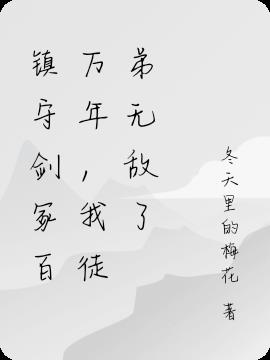 镇守剑冢百
万年，我徒
弟无敌了
冬天里的梅花 著